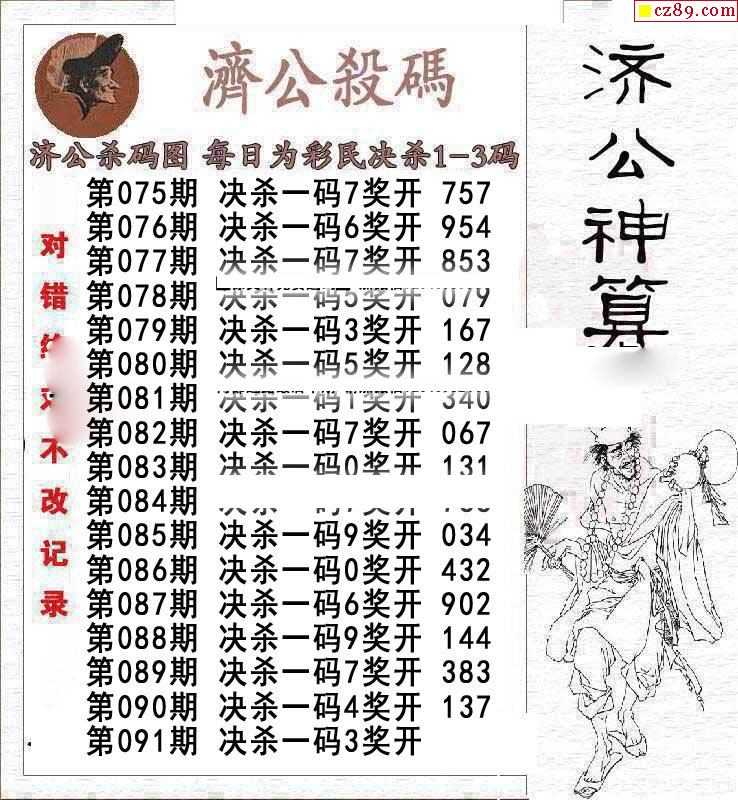 cz89.com
濟公殺碼
济公杀码图 每日为彩民决杀1-3码
第075期 决杀一码7奖开 757
第076期 决杀一码6奖开 954
第077期 决杀一码7奖开 853
第078期 决杀一码5奖开 079
第079期 决杀一码3奖开 167
第080期 决杀一码5奖开 128
第081期 决杀一码1奖开 340
第082期 决杀一码7奖开 067
第083期 决杀一码0奖开 131
第084期
第085期 决杀一码9奖开 034
第086期 决杀一码0奖开 432
第087期 决杀一码6奖开 902
第088期 决杀一码9奖开 144
第089期 决杀一码7奖开 383
第090期 决杀一码4奖开 137
第091期 决杀一码3奖开
对错
不改记录
济公神算